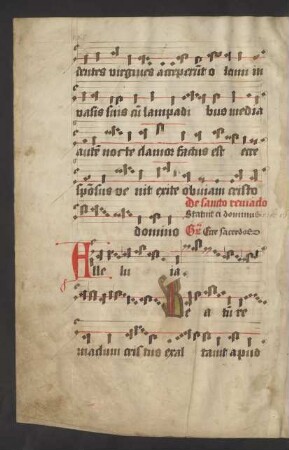 dentes virgines acceperūt o leum in
vasis suis cū lampadi bus media
autē nocte clamor factus est ecce
spōsus ve nit exite obviam cristo
De sancto
Statuit ei dominus
domino Gr Ecce sacerdos
Alle lu ia
Be a tū re
cris tus exal tavit apud